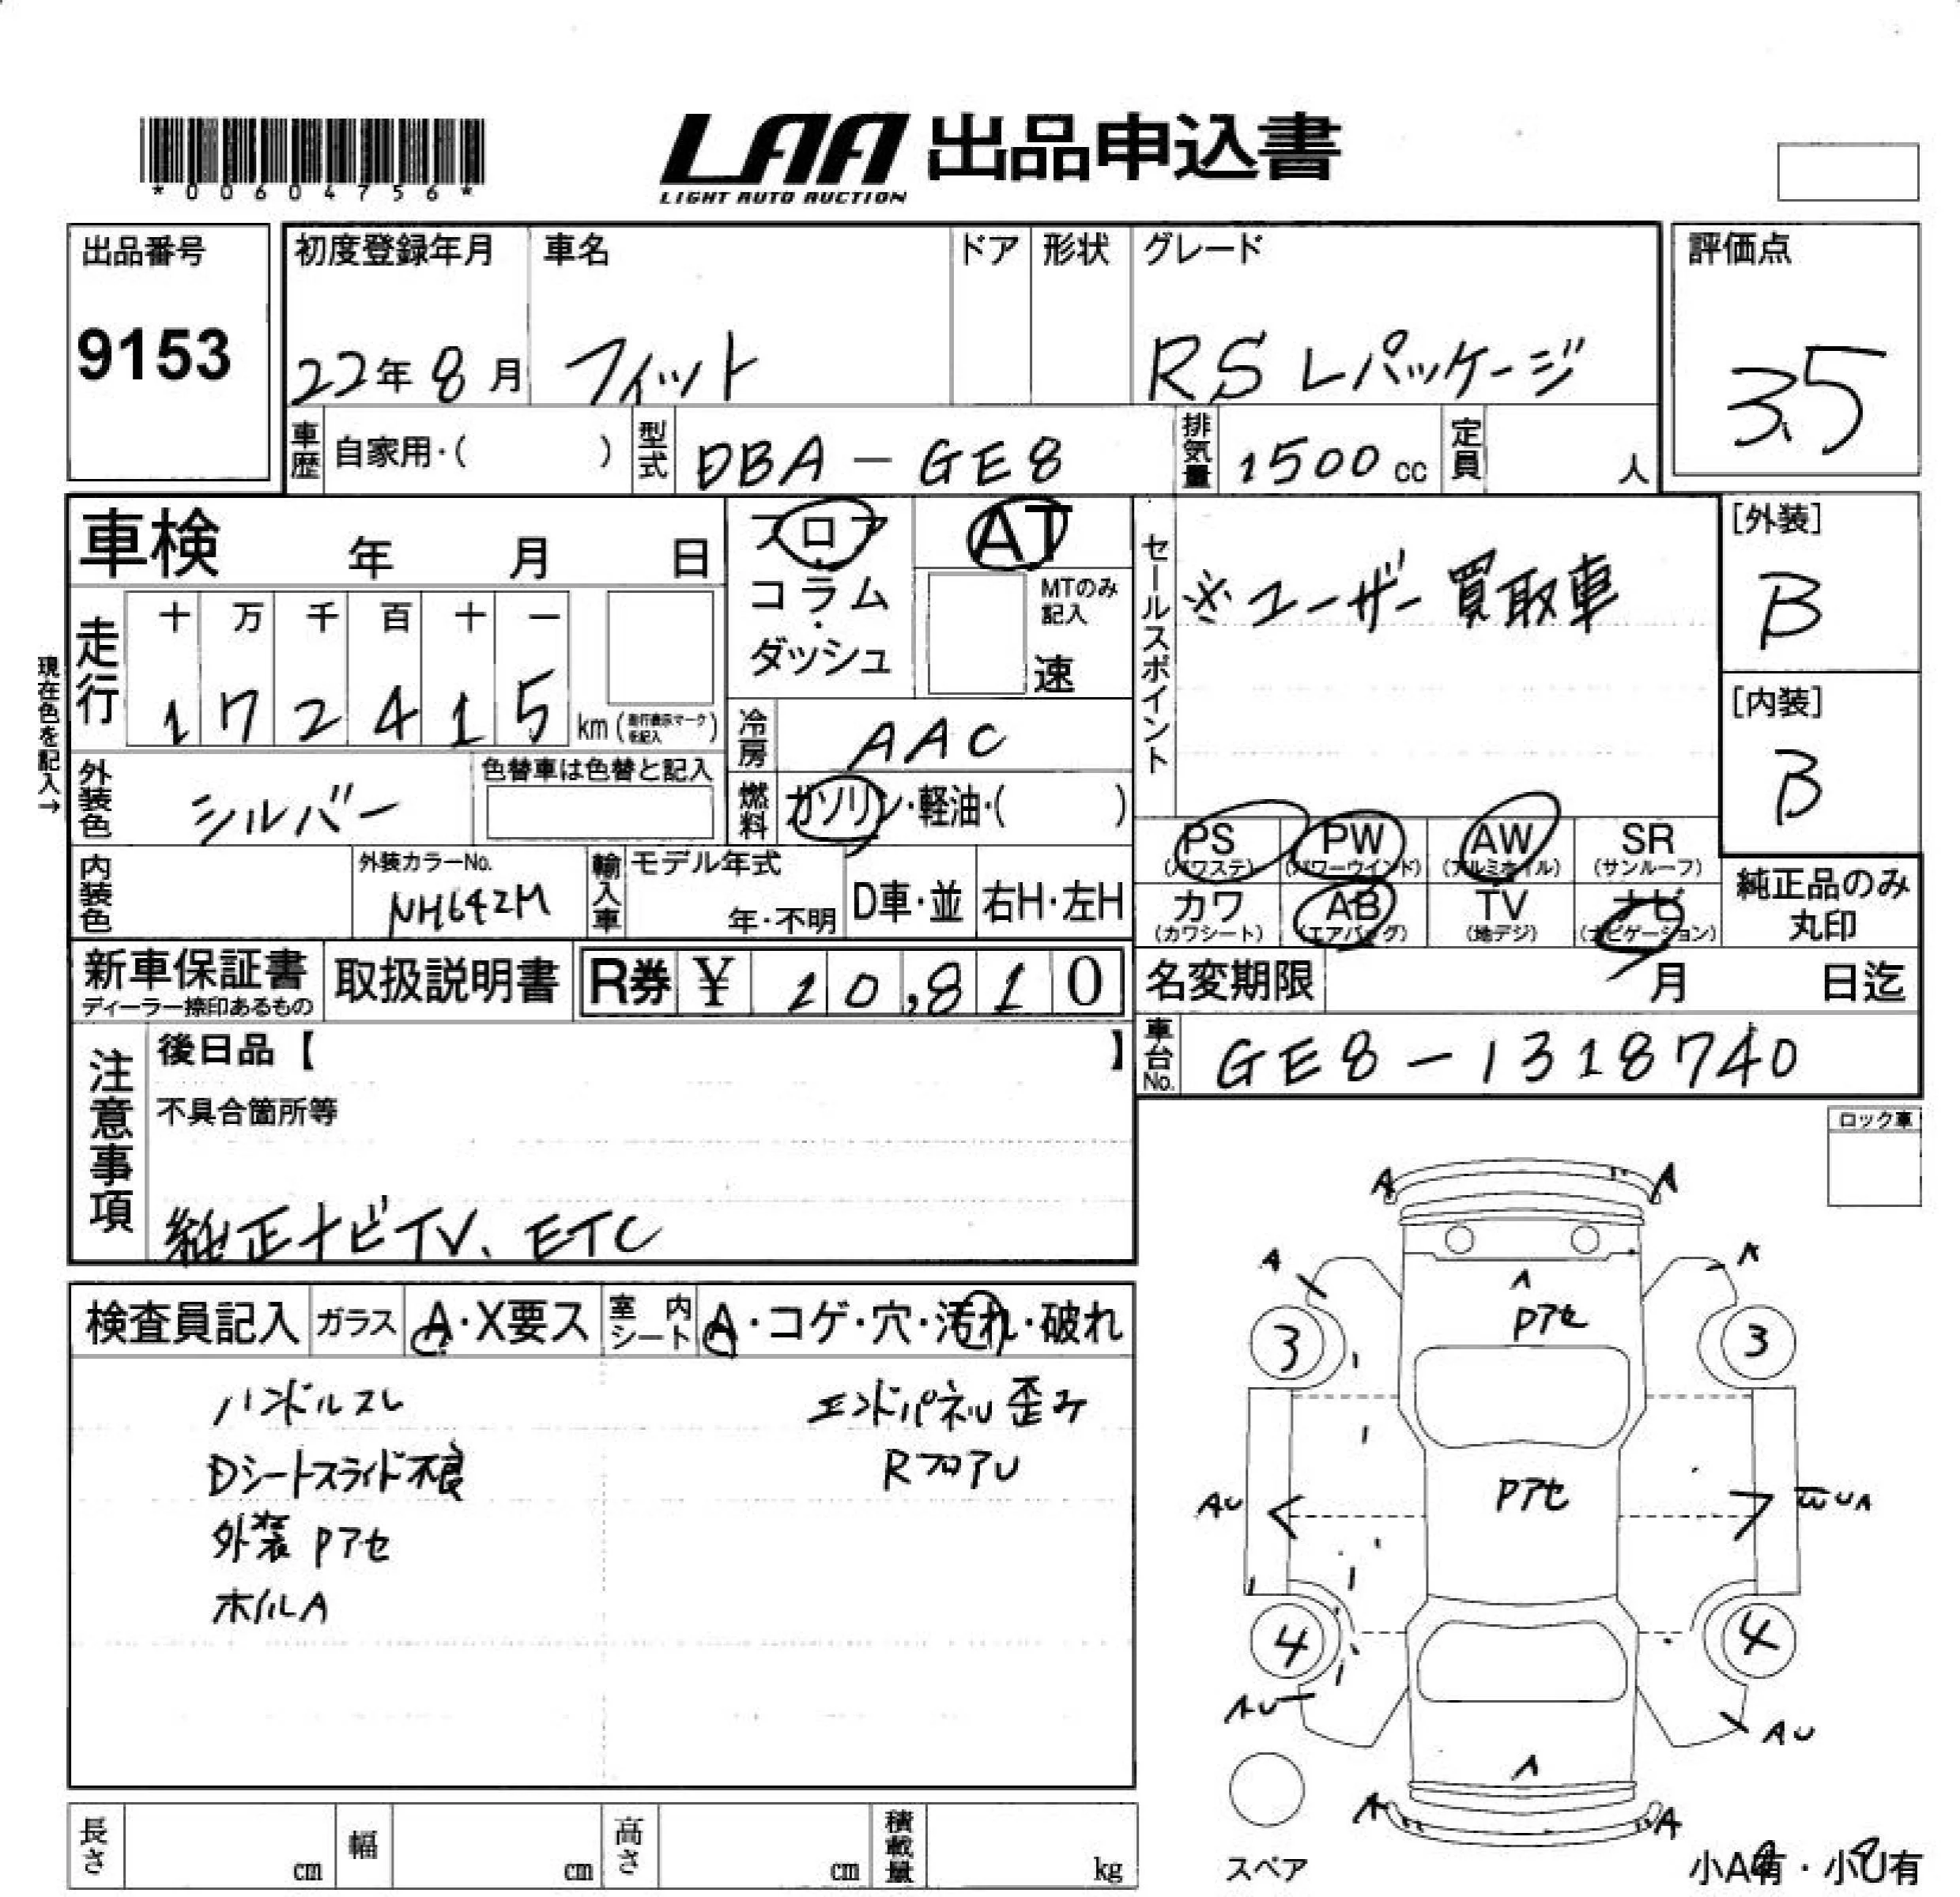 *00604756*
LAA 出品申込書
LIGHT AUTO AUCTION
出品番号
9153
初度登録年月
22年8月
車名
フィット
ドア
形状
グレード
RS Lパッケージ
評価点
3.5
車歴
自家用・( )
型式
DBA-GE8
排気量
1500cc
定員
人
車検 年 月 日
フロア・コラム・ダッシュ
AT
MTのみ記入
速
セールスポイント
※ユーザー買取車
[外装]
B
[内装]
B
現在色を記入→
走行
十 万 千 百 十 一
1 7 2 4 1 5 km
冷房
AAC
外装色
シルバー
色替車は色替と記入
燃料
ガソリン・軽油・( )
PS
(パワステ)
PW
(パワーウインド)
AW
(アルミホイル)
SR
(サンルーフ)
カワ
(カワシート)
AB
(エアバッグ)
TV
(地デジ)
ナビ
(ナビゲーション)
純正品のみ
丸印
内装色
外装カラーNo.
NH642M
輸入車
モデル年式
年・不明
D車・並
右H・左H
新車保証書
ディーラー捺印あるもの
取扱説明書
R券 ¥ 10,810
名変期限 月 日迄
車台No.
GE8-1318740
注意事項
後日品【 】
不具合箇所等
純正ナビTV、ETC
ロック車
検査員記入
ガラス
A・X要ス
室内シート
A・コゲ・穴・汚れ・破れ
ハンドルスレ
Dシートスライド不良
外装Pアセ
ホイルA
エンドパネル歪み
RフロアU
A
A
A
A
A
Pアセ
3
3
Pアセ
AU
4
4
AU
AU
A
A
A
スペア
小A有・小U有
長さ cm
幅 cm
高さ cm
積載量 kg